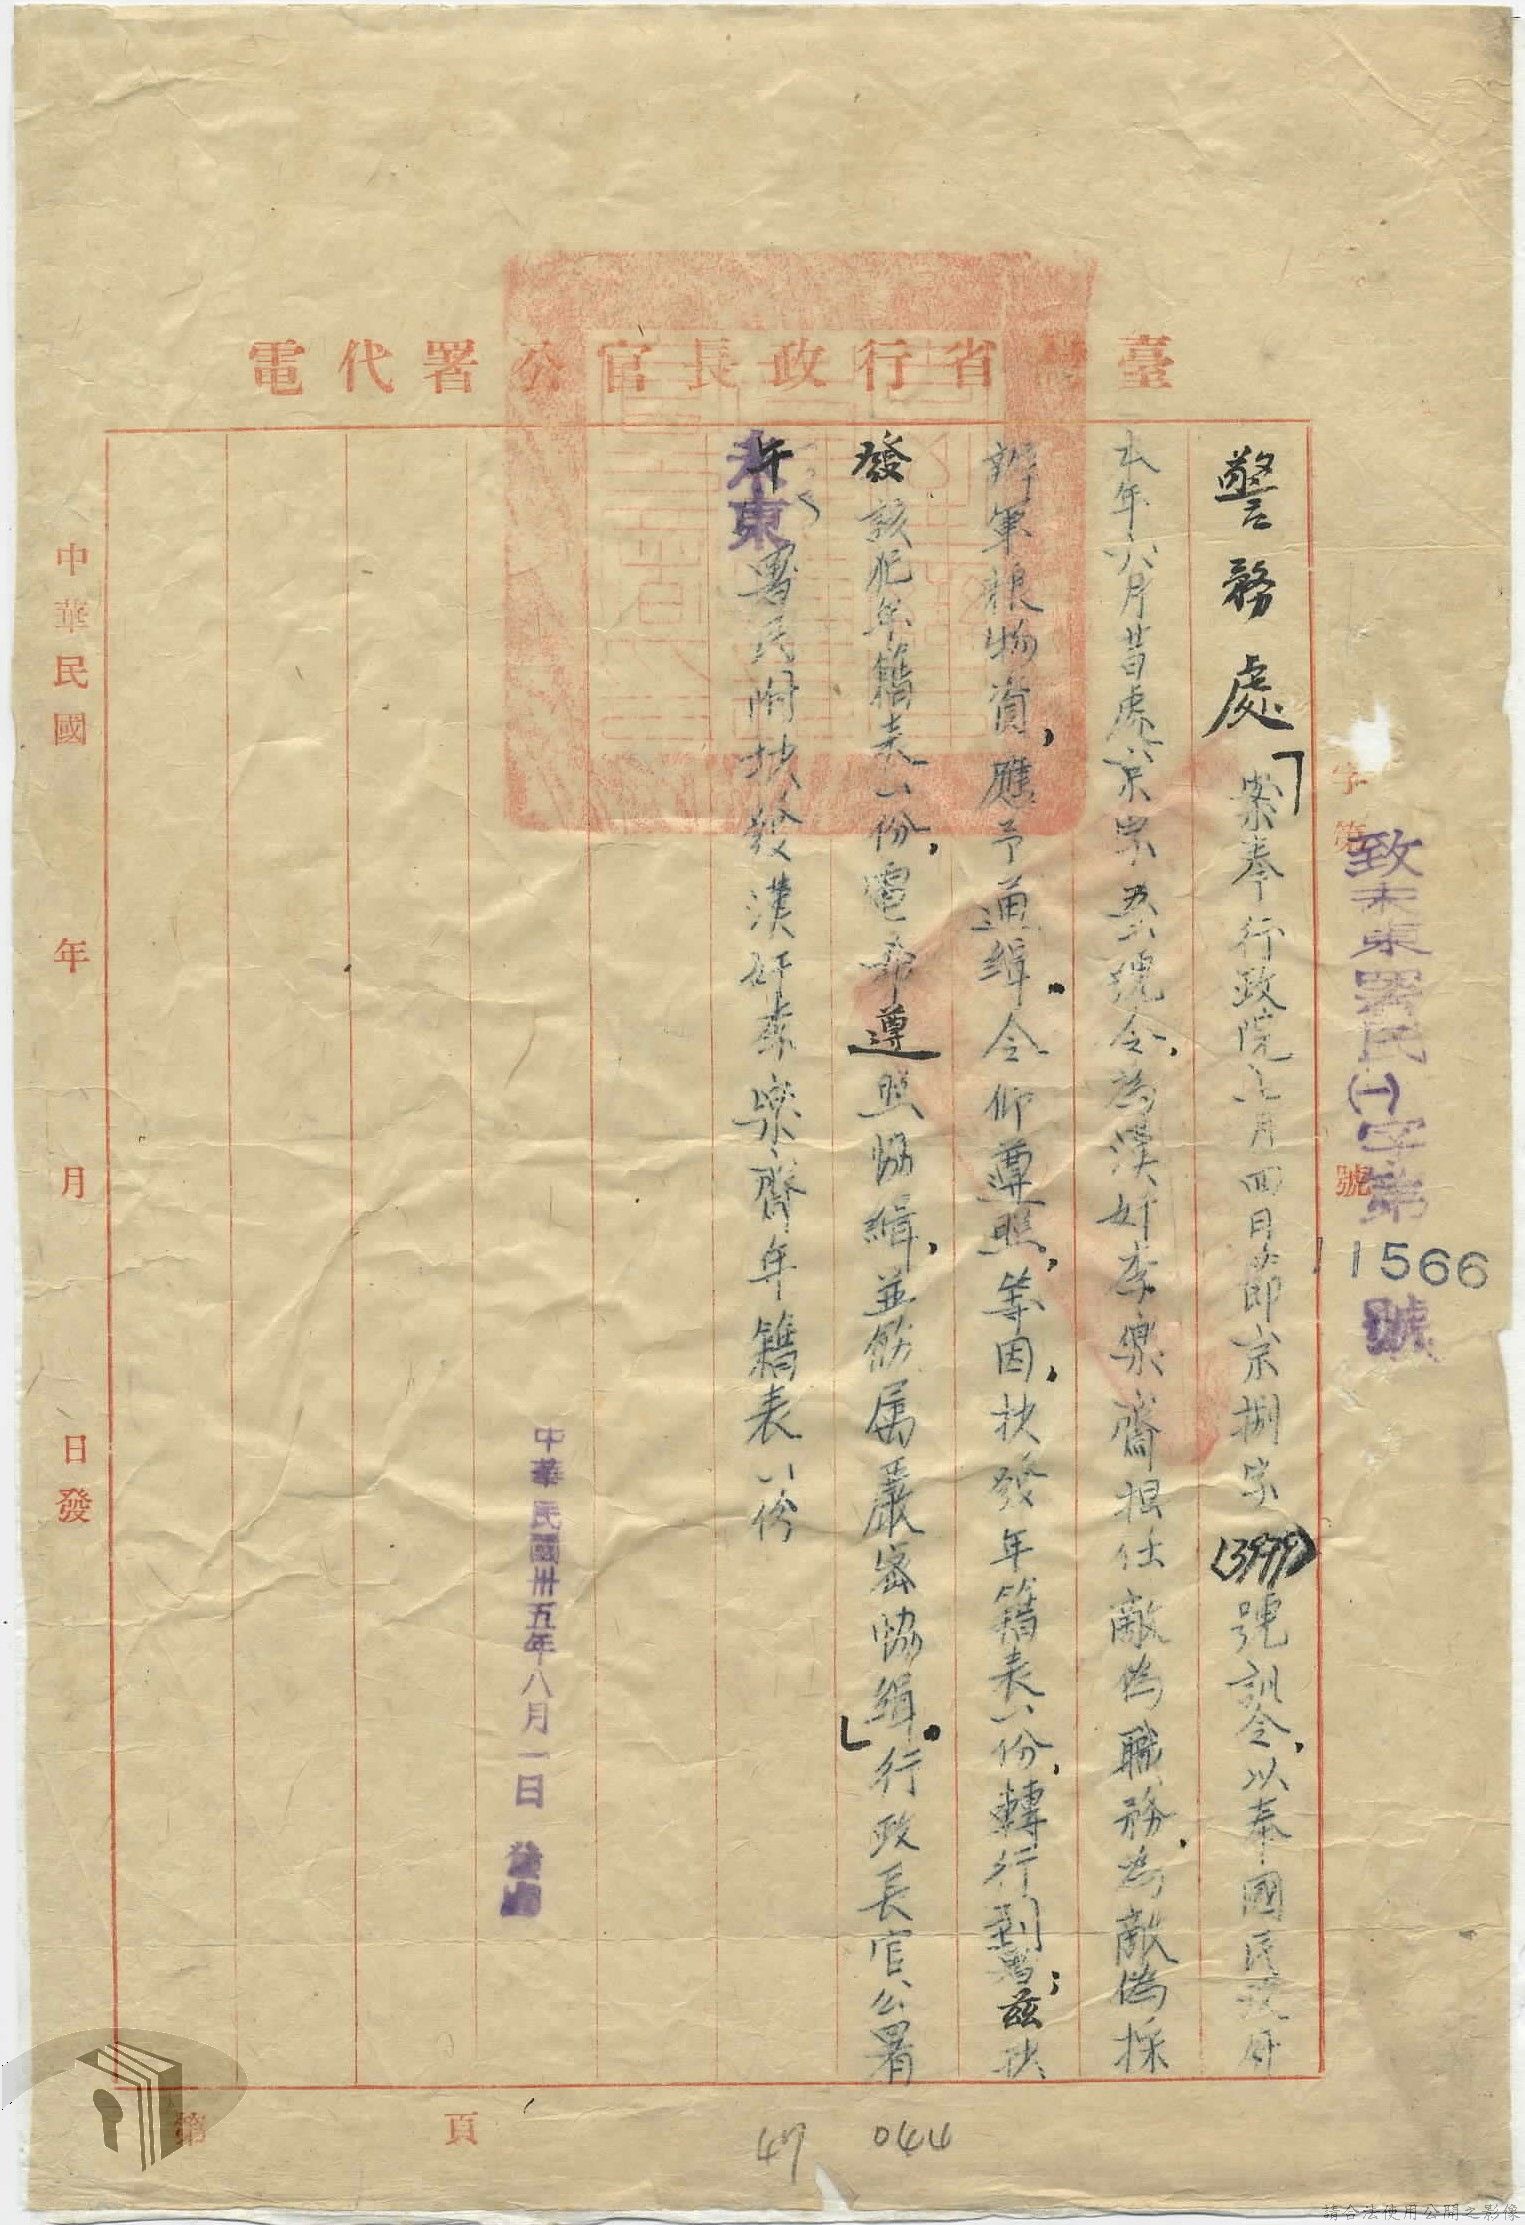 臺省行政長官公署代電
字第號
致未東署民(一)字第11566號
警務處「案奉行政院七月四日節京捌字(3979)號訓令,以奉國民政府
去年六月廿日處京字五號令,為漢奸李樂齋担任敵偽職務,為敵偽採
辦軍粮物資,應予通緝。令仰遵照,等因,抄發年籍表一份,轉行到署;茲抄
發該犯年籍表一份,電希遵照協緝,並飭属嚴密協緝。」行政長官公署
午未東署民附抄發漢奸李樂齋年籍表一份
中華民國卅五年八月一日發
中華民國年月日發
第頁
47 044
請合法使用公開之影像